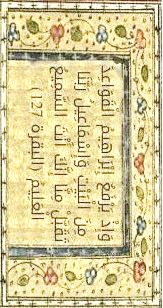 وَإِذْ يَرْفَعُ إِبْرَاهِيمُ الْقَوَاعِدَ
مِنَ الْبَيْتِ وَإِسْمَاعِيلُ رَبَّنَا
تَقَبَّلْ مِنَّا إِنَّكَ أَنْتَ السَّمِيعُ
الْعَلِيمُ (البقرة 127)